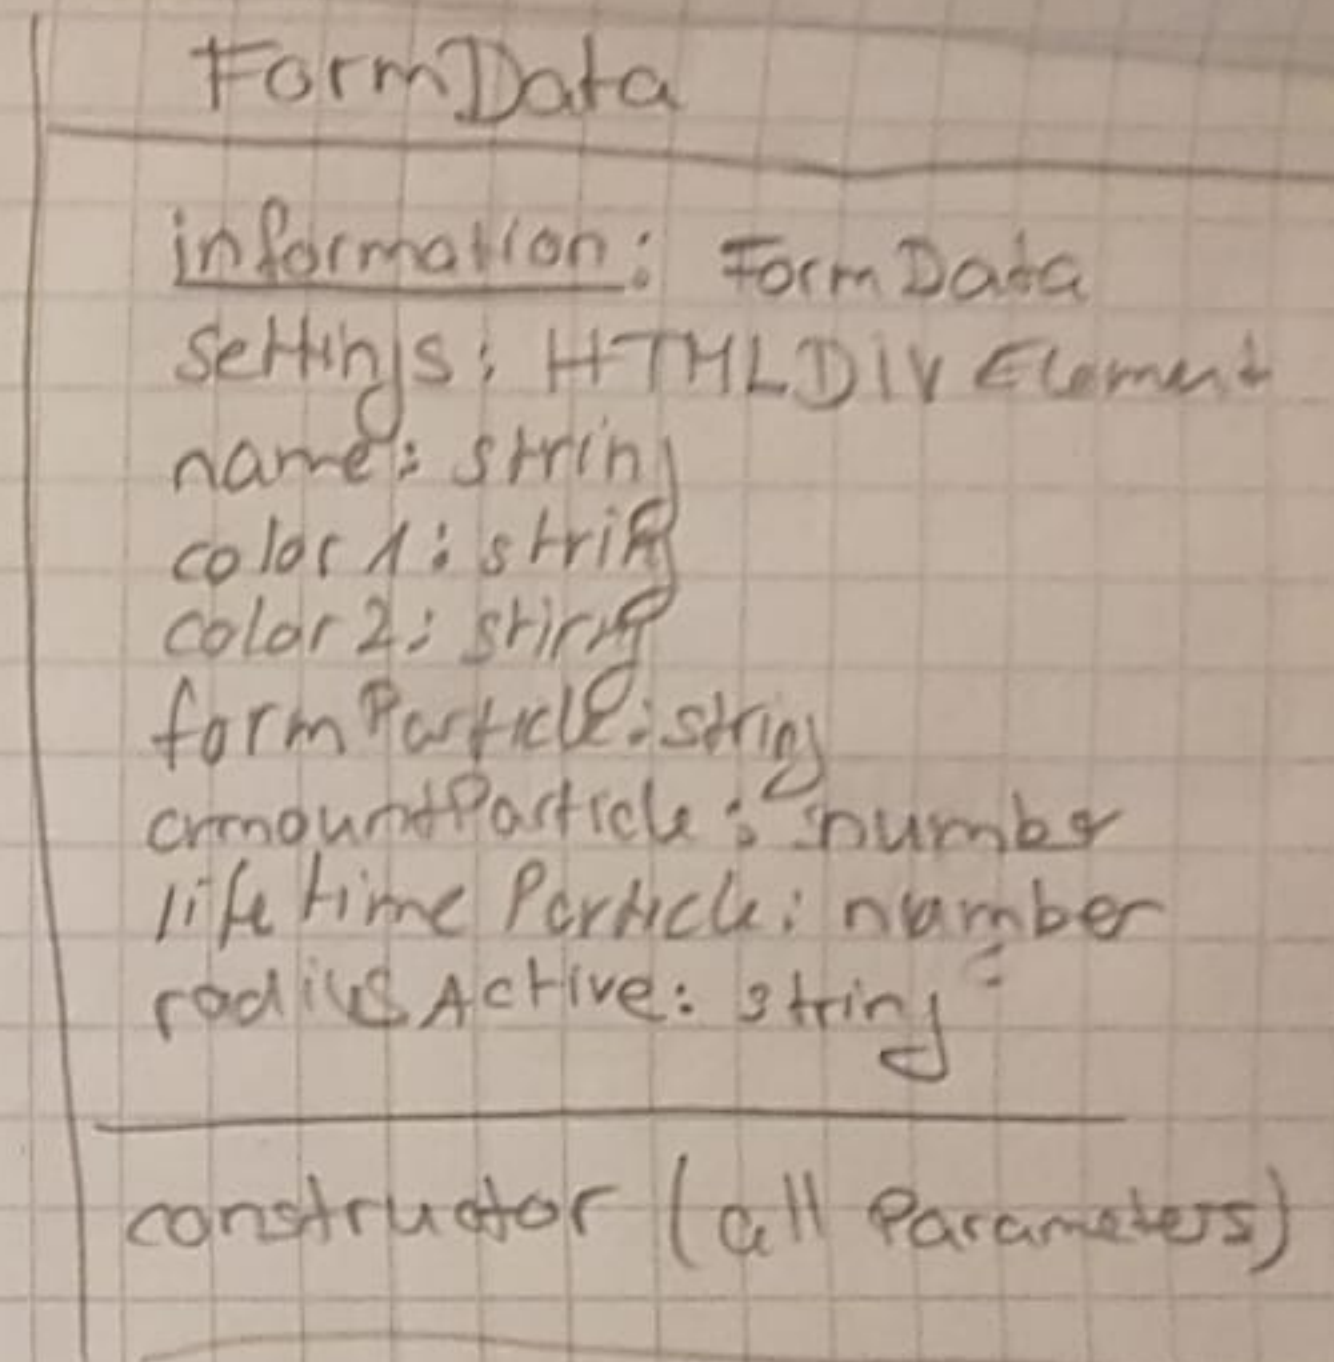 FormData
information: FormData
settings: HTMLDivElement
name: string
color1: string
color2: stirng
formParticle: string
amountParticle: number
lifetimeParticle: number
radiusActive: string
constructor (all Parameters)